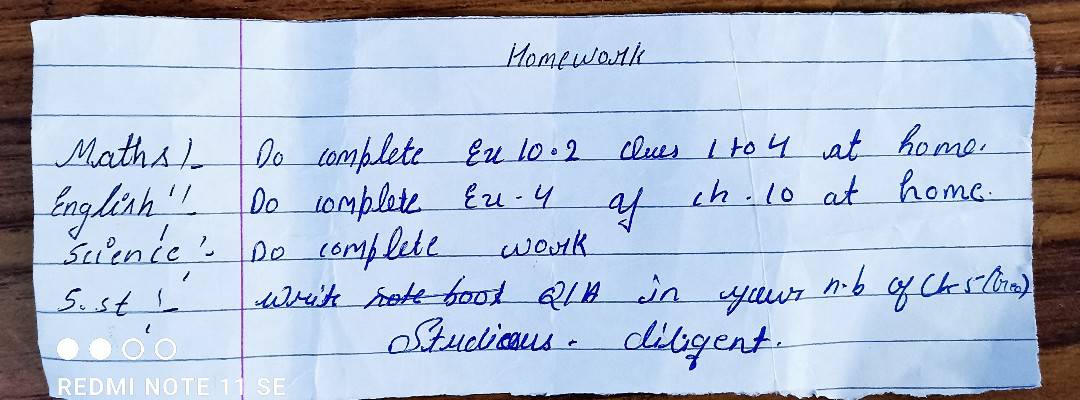 Homework
Maths :- Do complete Ex 10.2 Ques 1 to 4 at home.
English :- Do complete Ex - 4 of ch. 10 at home.
Science :- Do complete work
S.st :- Write note book Q/A in your n.b of Ch 5 (Geo)
Studious - diligent.
REDMI NOTE 11 SE